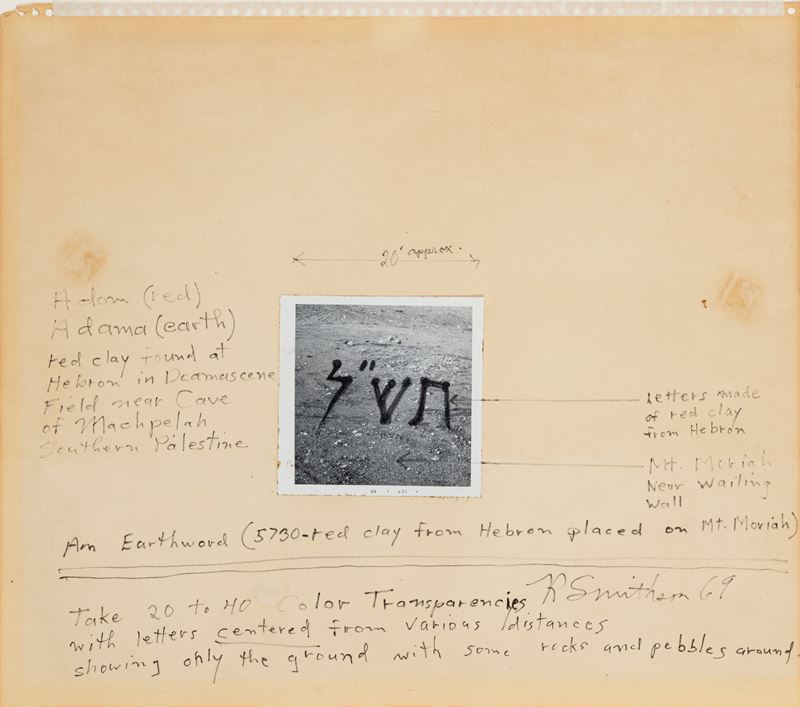 20' approx.
Adom (red)
Adama (earth)
red clay found at
Hebron in Dcamascene
Field near Cave
of Machpelah
Southern Palestine
תש"ל
letters made
of red clay
from Hebron
Mt. Moriah
Near Wailing
Wall
An Earthword (5730-red clay from Hebron placed on Mt. Moriah)
R Smithson 69
Take 20 to 40 Color Transparencies
with letters centered from various distances
showing only the ground with some rocks and pebbles around.